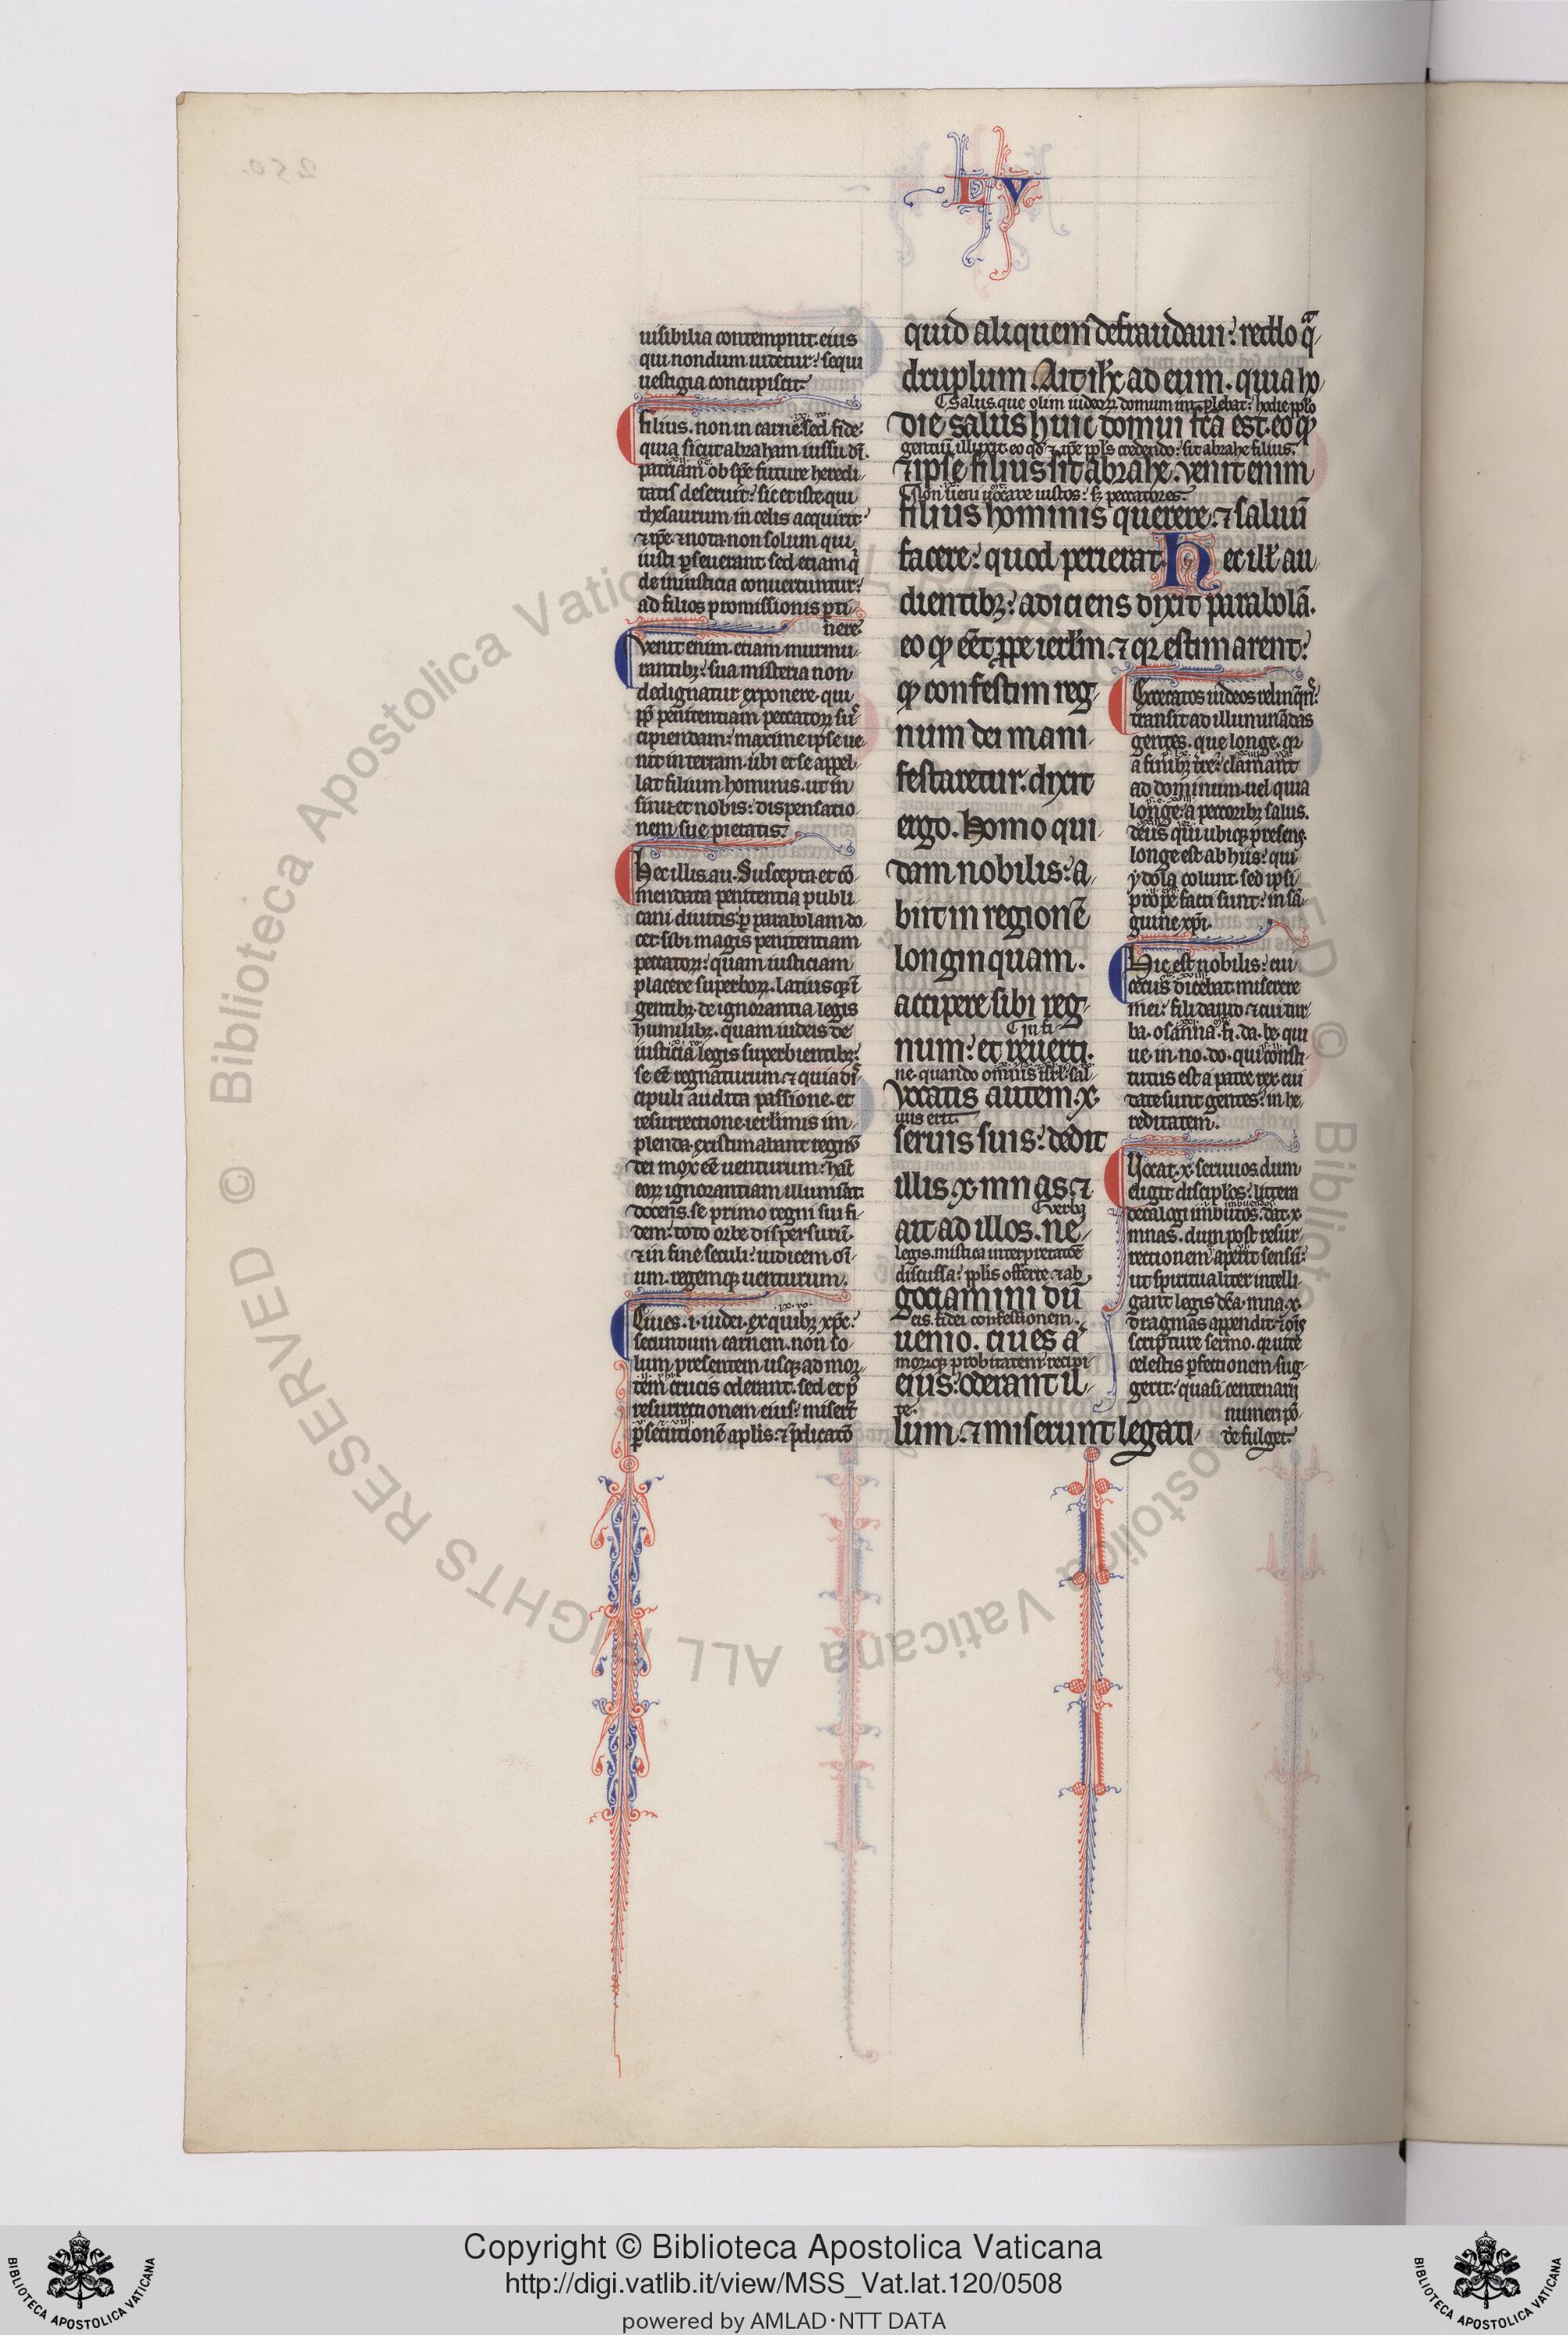 LV
uisibilia contempnit. eius
qui nondum uidetur: sequi
uestigia concupiscit.
filius. non in carne sed fide:
quia sicut abraham iussu di.
patriam ob spe future heredi
tatis deseruit: sic et iste qui
thesaurum in celis acquirit:
⁊ ipe ⁊ nota non solum qui
iusti pseuerant sed etiam q
de iniusticia conuertuntur:
ad filios promissionis pti
nere.
Venit enim. etiam murmu
rantibꝫ: sua misteria non
dedignatur exponere. qui
pp penitentiam peccatoꝝ su
cipiendam: maxime ipse ue
nit in terram. ubi et se appel
lat filium hominis. ut in
sinuet nobis: dispensatio
nem sue pietatis.
Hec illis au. Suscepta et co
mendata penitentia publi
cani diuitis: p parabolam do
cet. sibi magis penitentiam
peccatoꝝ: quam iusticiam
placere superboꝝ. latiusqꝫ i
gentibꝫ. de ignorantia legis
humilibꝫ. quam iudeis de
iusticia legis superbientibꝫ:
se ee regnaturum. ⁊ quia di
cipuli audita passione. et
resurrectione. ierlimis im
plenda. existimabant regnu
dei mox ee uenturum: hanc
eoꝝ ignorantiam illuminat.
docens. se primo regni sui fi
dem: toto orbe dispersurum.
⁊ in fine seculi: iudicem oi
um. regemqꝫ uenturum.
Ciues. i. iudei. ex quibꝫ xpc:
secundum carnem. non so
lum presentem usqꝫ ad mor
tem crucis oderant. sed et p
resurrectionem eius: miserunt
psecutione aplis: ⁊ pdicatio
quid aliquem defraudaui: reddo qa
druplum. Ait ihc ad eum. quia ho
Salus. que olim iudeoꝝ domum implebat: hodie pplo
die salus huic domui fca est. eo ꝙ
gentiu illuxit. eo qd ⁊ ipe ppls credendo: sit abrahe filius.
⁊ ipse filius sit abrahe. venit enim
Non ueni uocare iustos: sꝫ peccatores.
filius hominis querere. ⁊ saluu
facere: quod perierat. Hec ill au
dientibꝫ: adiciens dixit parabola.
eo ꝙ eet ppe ierlm. ⁊ qꝛ estimarent:
ꝙ confestim reg
num dei mani
festaretur. dixit
ergo. Homo qui
dam nobilis: a
biit in regione
longinquam.
accipere sibi reg
In fi
num: et reuerti.
ne. quando omnis isrl. sal
Vocatis autem. x.
uus erit.
seruis suis: dedit
illis. x. mnas. ⁊
Verbꝫ
ait ad illos. ne
legis. mistica interpretatione
discussa: pplis offerte. ⁊ ab
gociamini du
eis. fidei confessionem.
uenio. ciues a
morꝫqꝫ probitatem: recipi
eius: oderant il
te.
lum. ⁊ miserunt legati
Excecatos iudeos relinqns:
transit ad illuminadas
gentes. que longe. qꝛ
a finibꝫ tre: clamant
ad dominum. uel quia
longe: a peccatoribꝫ salus.
deus qui ubiqꝫ presens.
longe est ab hiis: qui
ydola colunt. sed ipsi
prope facti sunt: in sa
guine xpi.
Hic est nobilis: cui
cecus dicebat. miserere
mei: fili dauid. ⁊ cui tur
ba. osanna. fi. da. be. qui
ue. in. no. do. qui consti
tutus est a patre rex. cui
date sunt gentes: in he
reditatem.
Vocat. x. seruos. dum
eligit disciplos: littera
decalogi imbutos. dat. x.
mnas. dum post resur
rectionem aperit sensu:
ut spiritualiter intelli
gant legis dca. mna. x.
dragmas appendit. ⁊ ois
scripture sermo. qꝛ uite
celestis pfectionem sug
gerit: quasi centenarii
numeri po
de fulget.
Copyright © Biblioteca Apostolica Vaticana
http://digi.vatlib.it/view/MSS_Vat.lat.120/0508
powered by AMLAD·NTT DATA
BIBLIOTECA APOSTOLICA VATICANA
BIBLIOTECA APOSTOLICA VATICANA
© Biblioteca Apostolica Vaticana ALL RIGHTS RESERVED